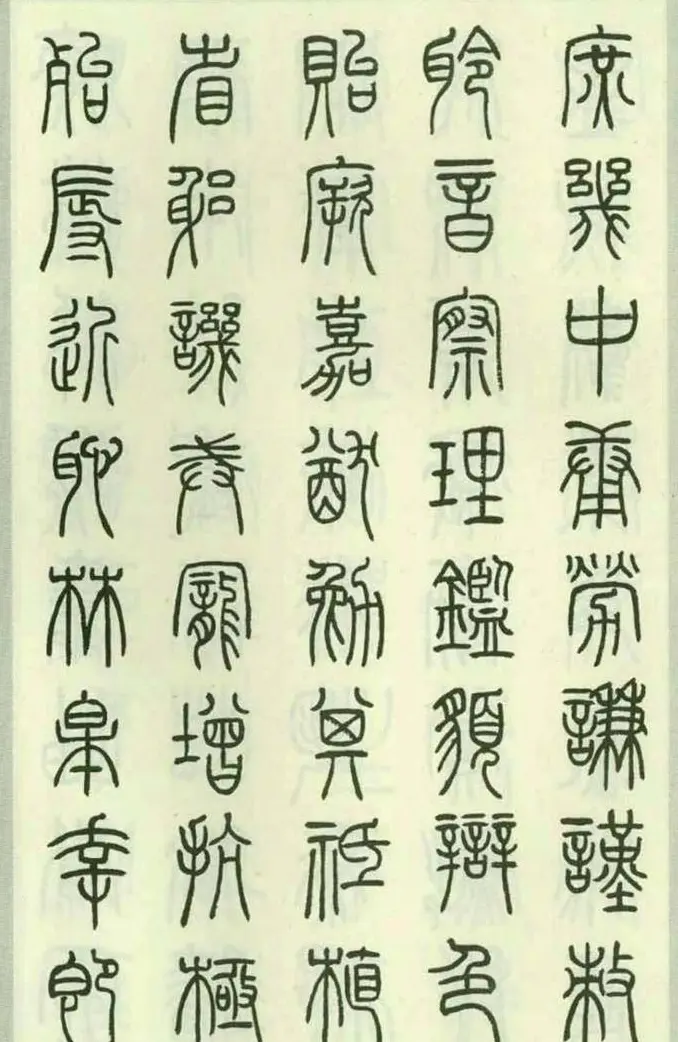 庶幾中庸勞謙謹敕
聆音察理鑑貌辯色
貽厥嘉猷勉其祗植
省躬譏戒寵增抗極
殆辱近恥林皋幸即